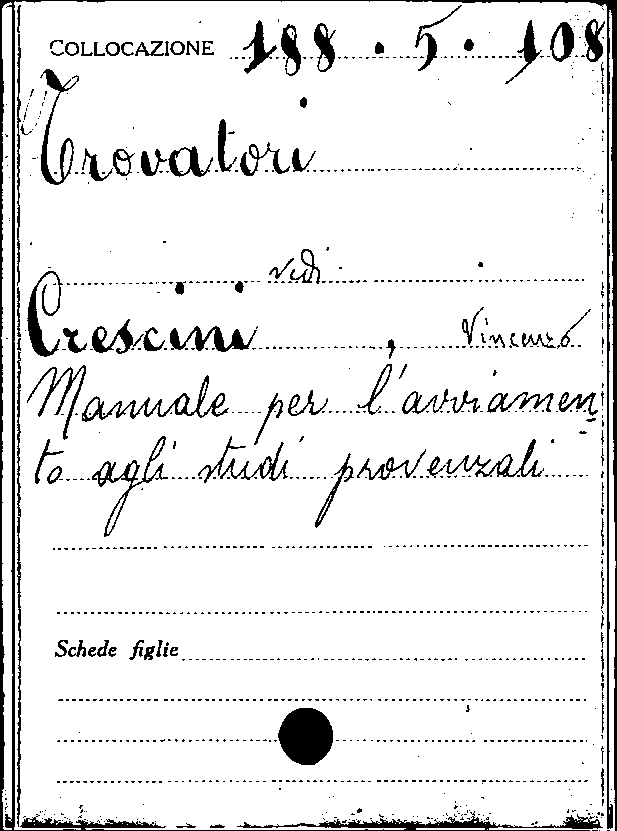 COLLOCAZIONE 188.5.108
Trovatori
vedi
Crescini, Vincenzo
Manuale per l'avviamen-
to agli studi provenzali
Schede figlie